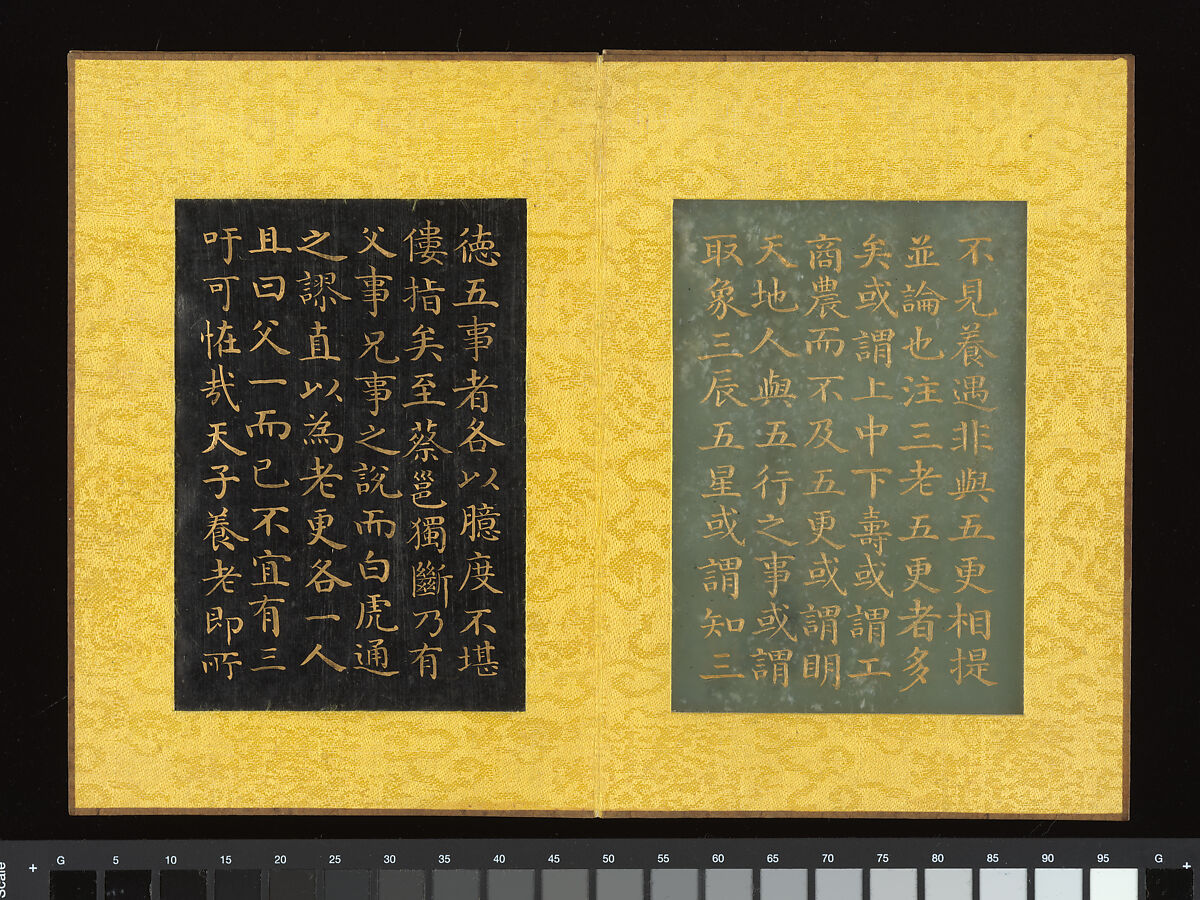 不見養遇非與五更相提
並論也注三老五更者多
矣或謂上中下壽或謂工
商農而不及五更或謂明
天地人與五行之事或謂
取象三辰五星或謂知三
德五事者各以臆度不堪
僂指矣至蔡邕獨斷乃有
父事兄事之說而白虎通
之謬直以為老更各一人
且曰父一而已不宜有三
吁可恠哉天子養老即所
Scale
+ G 5 10 15 20 25 30 35 40 45 50 55 60 65 70 75 80 85 90 95 G +